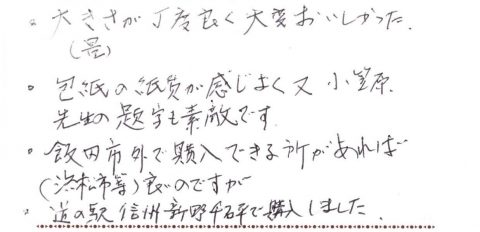 。大きさが丁度良く大変おいしかった.
(量)
。包紙の紙質が感じよく又 小笠原
先生の題字も素敵です
。飯田市外で購入できる所があれば
(浜松市等)良いのですが
。道の駅 信州新野千石平で購入しました.